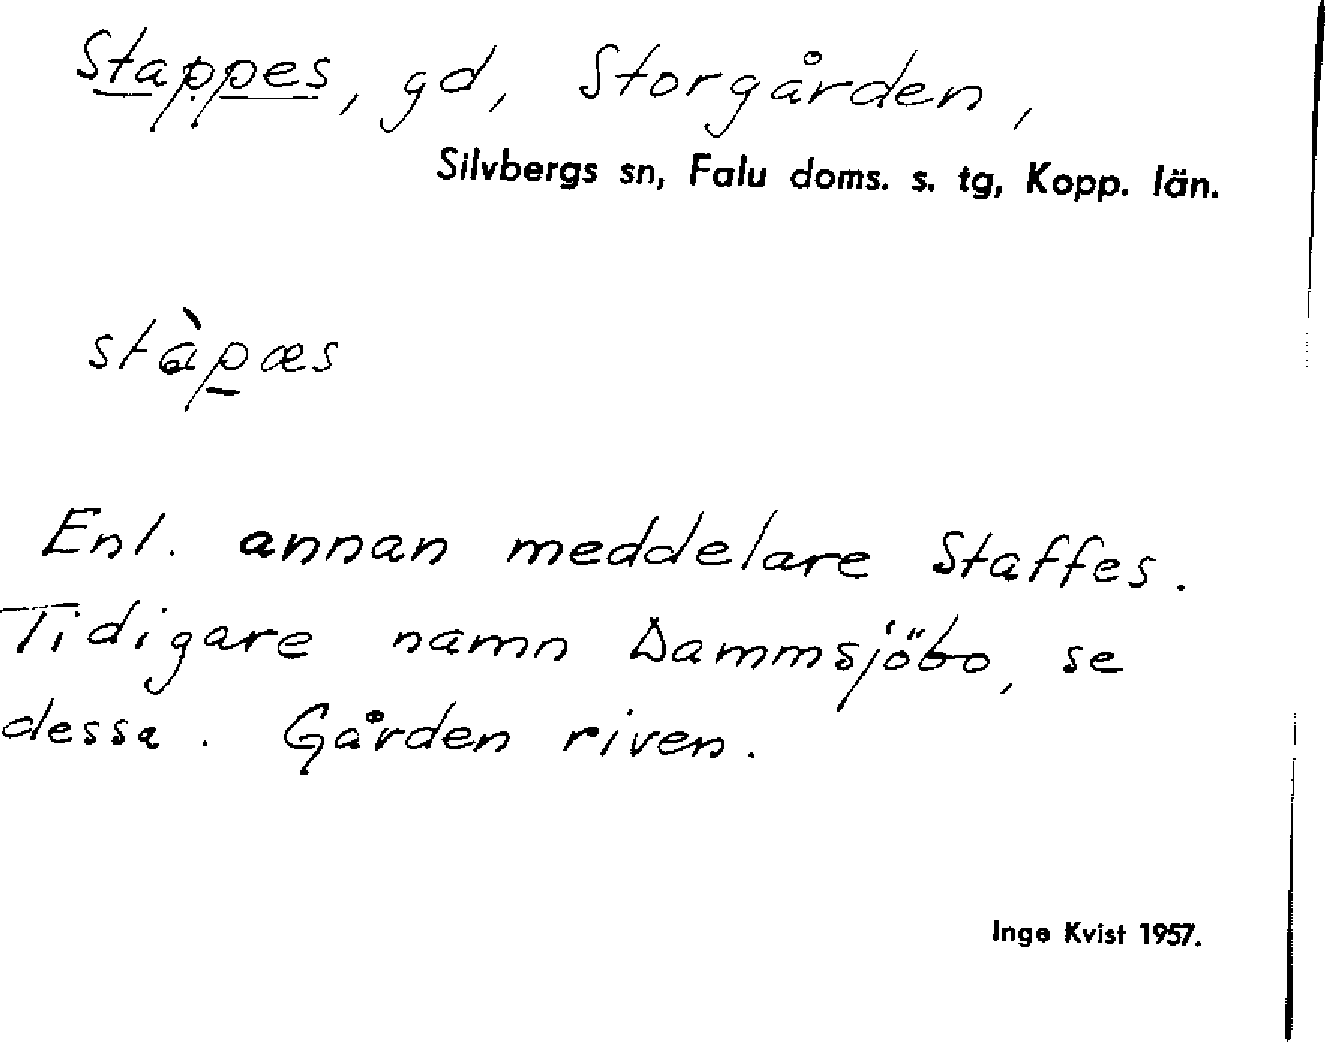 Stappes, gd, Storgården,
Silvbergs sn, Falu doms. s. tg, Kopp. län.
stàp̲æs
Enl. annan meddelare Staffes.
Tidigare namn Dammsjöbo, se
dessa. Gården riven.
Inge Kvist 1957.